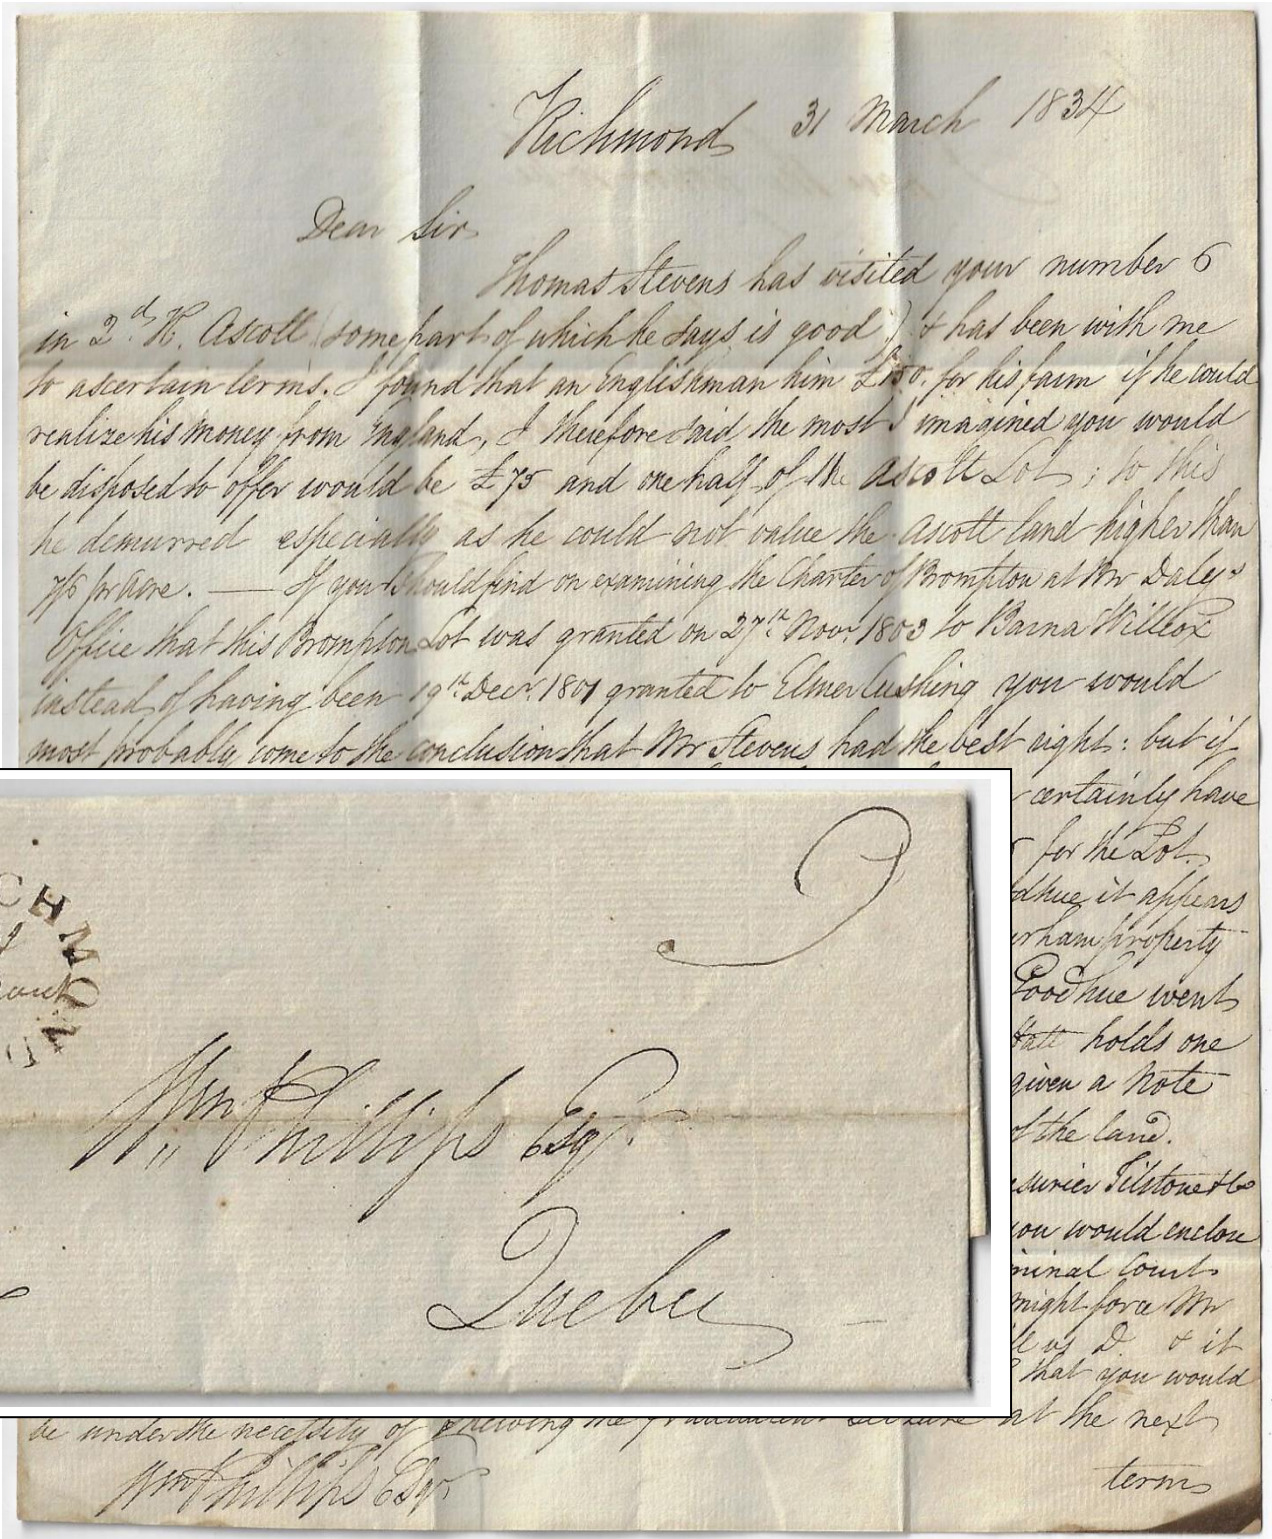 Richmond 31 March 1834
Dear Sir
Thomas Stevens has visited your number 6
in 2d. R. Ascott (some part of which he says is good) & has been with me
to ascertain terms. I found that an Englishman him £150. for his farm if he could
realize his money from England, I therefore said the most I imagined you would
be disposed to offer would be £75 and one half of the Ascott Lot; to this
he demurred especially as he could not value the Ascott land higher than
7/6 pr acre. — If you should find on examining the Charter of Brompton at Mr Daly's
Office that this Brompton Lot was granted on 27th. Novr. 1803 to Barna Willcox
instead of having been 19th Decr. 1801 granted to Elmer Cushing you would
most probably come to the conclusion that Mr Stevens had the best right: but if
certainly have
for the Lot.
dhue it appears
rham property
Goodhue went
Hall holds one
given a Note
of the land.
surier Tilstone & Co
you would enclose
minal Court
might force Mr
ll as D & it
that you would
be under the necessity of shewing the fraudulent at the next
terms
Wm Phillips Esqr
CHMOND
Wm Phillips Esqr.
Quebec